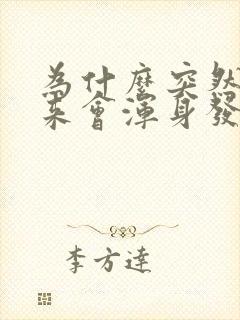 為什麼突然
来會渾身發
李方達